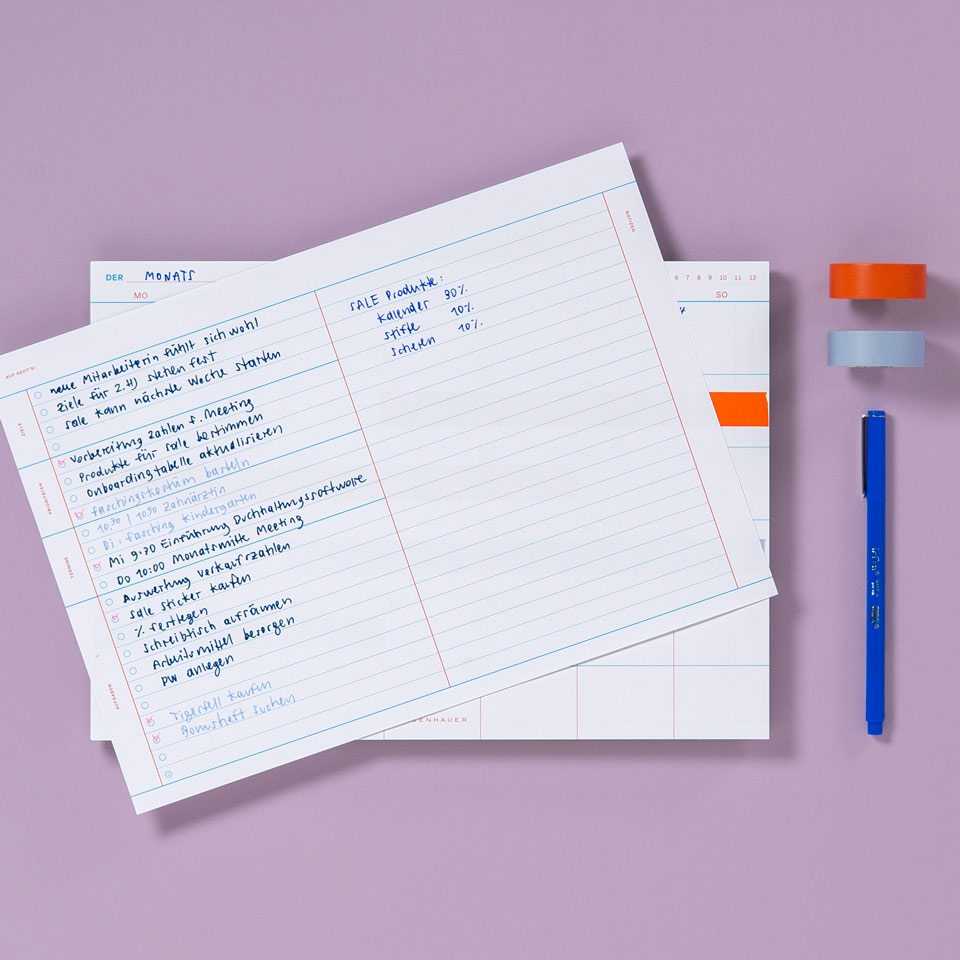 DER MONATS
MO
6 7 8 9 10 11 12
SO
AUF GEHT'S!
NOTIZEN
ZIELE
neue Mitarbeiterin fühlt sich wohl
Ziele für 2. HJ stehen fest
Sale kann nächste Woche starten
PRIORITÄTEN
Vorbereitung Zahlen f. Meeting
Produkte für Sale bestimmen
Onboardingtabelle aktualisieren
Faschingskostüm basteln
TERMINE
10:30 | Zahnärztin
Di: Fasching Kindergarten
Mi 9:30 Einführung Buchhaltungssoftware
Do 10:00 Monatsmitte Meeting
AUFGABEN
Auswertung Verkaufszahlen
Sale Sticker kaufen
% festlegen
Schreibtisch aufräumen
Arbeitsmittel besorgen
PW anlegen
Tigerfell kaufen
suchen
SALE Produkte:
Kalender 30%
Stifte 10%
Scheren 10%
ENHAUER